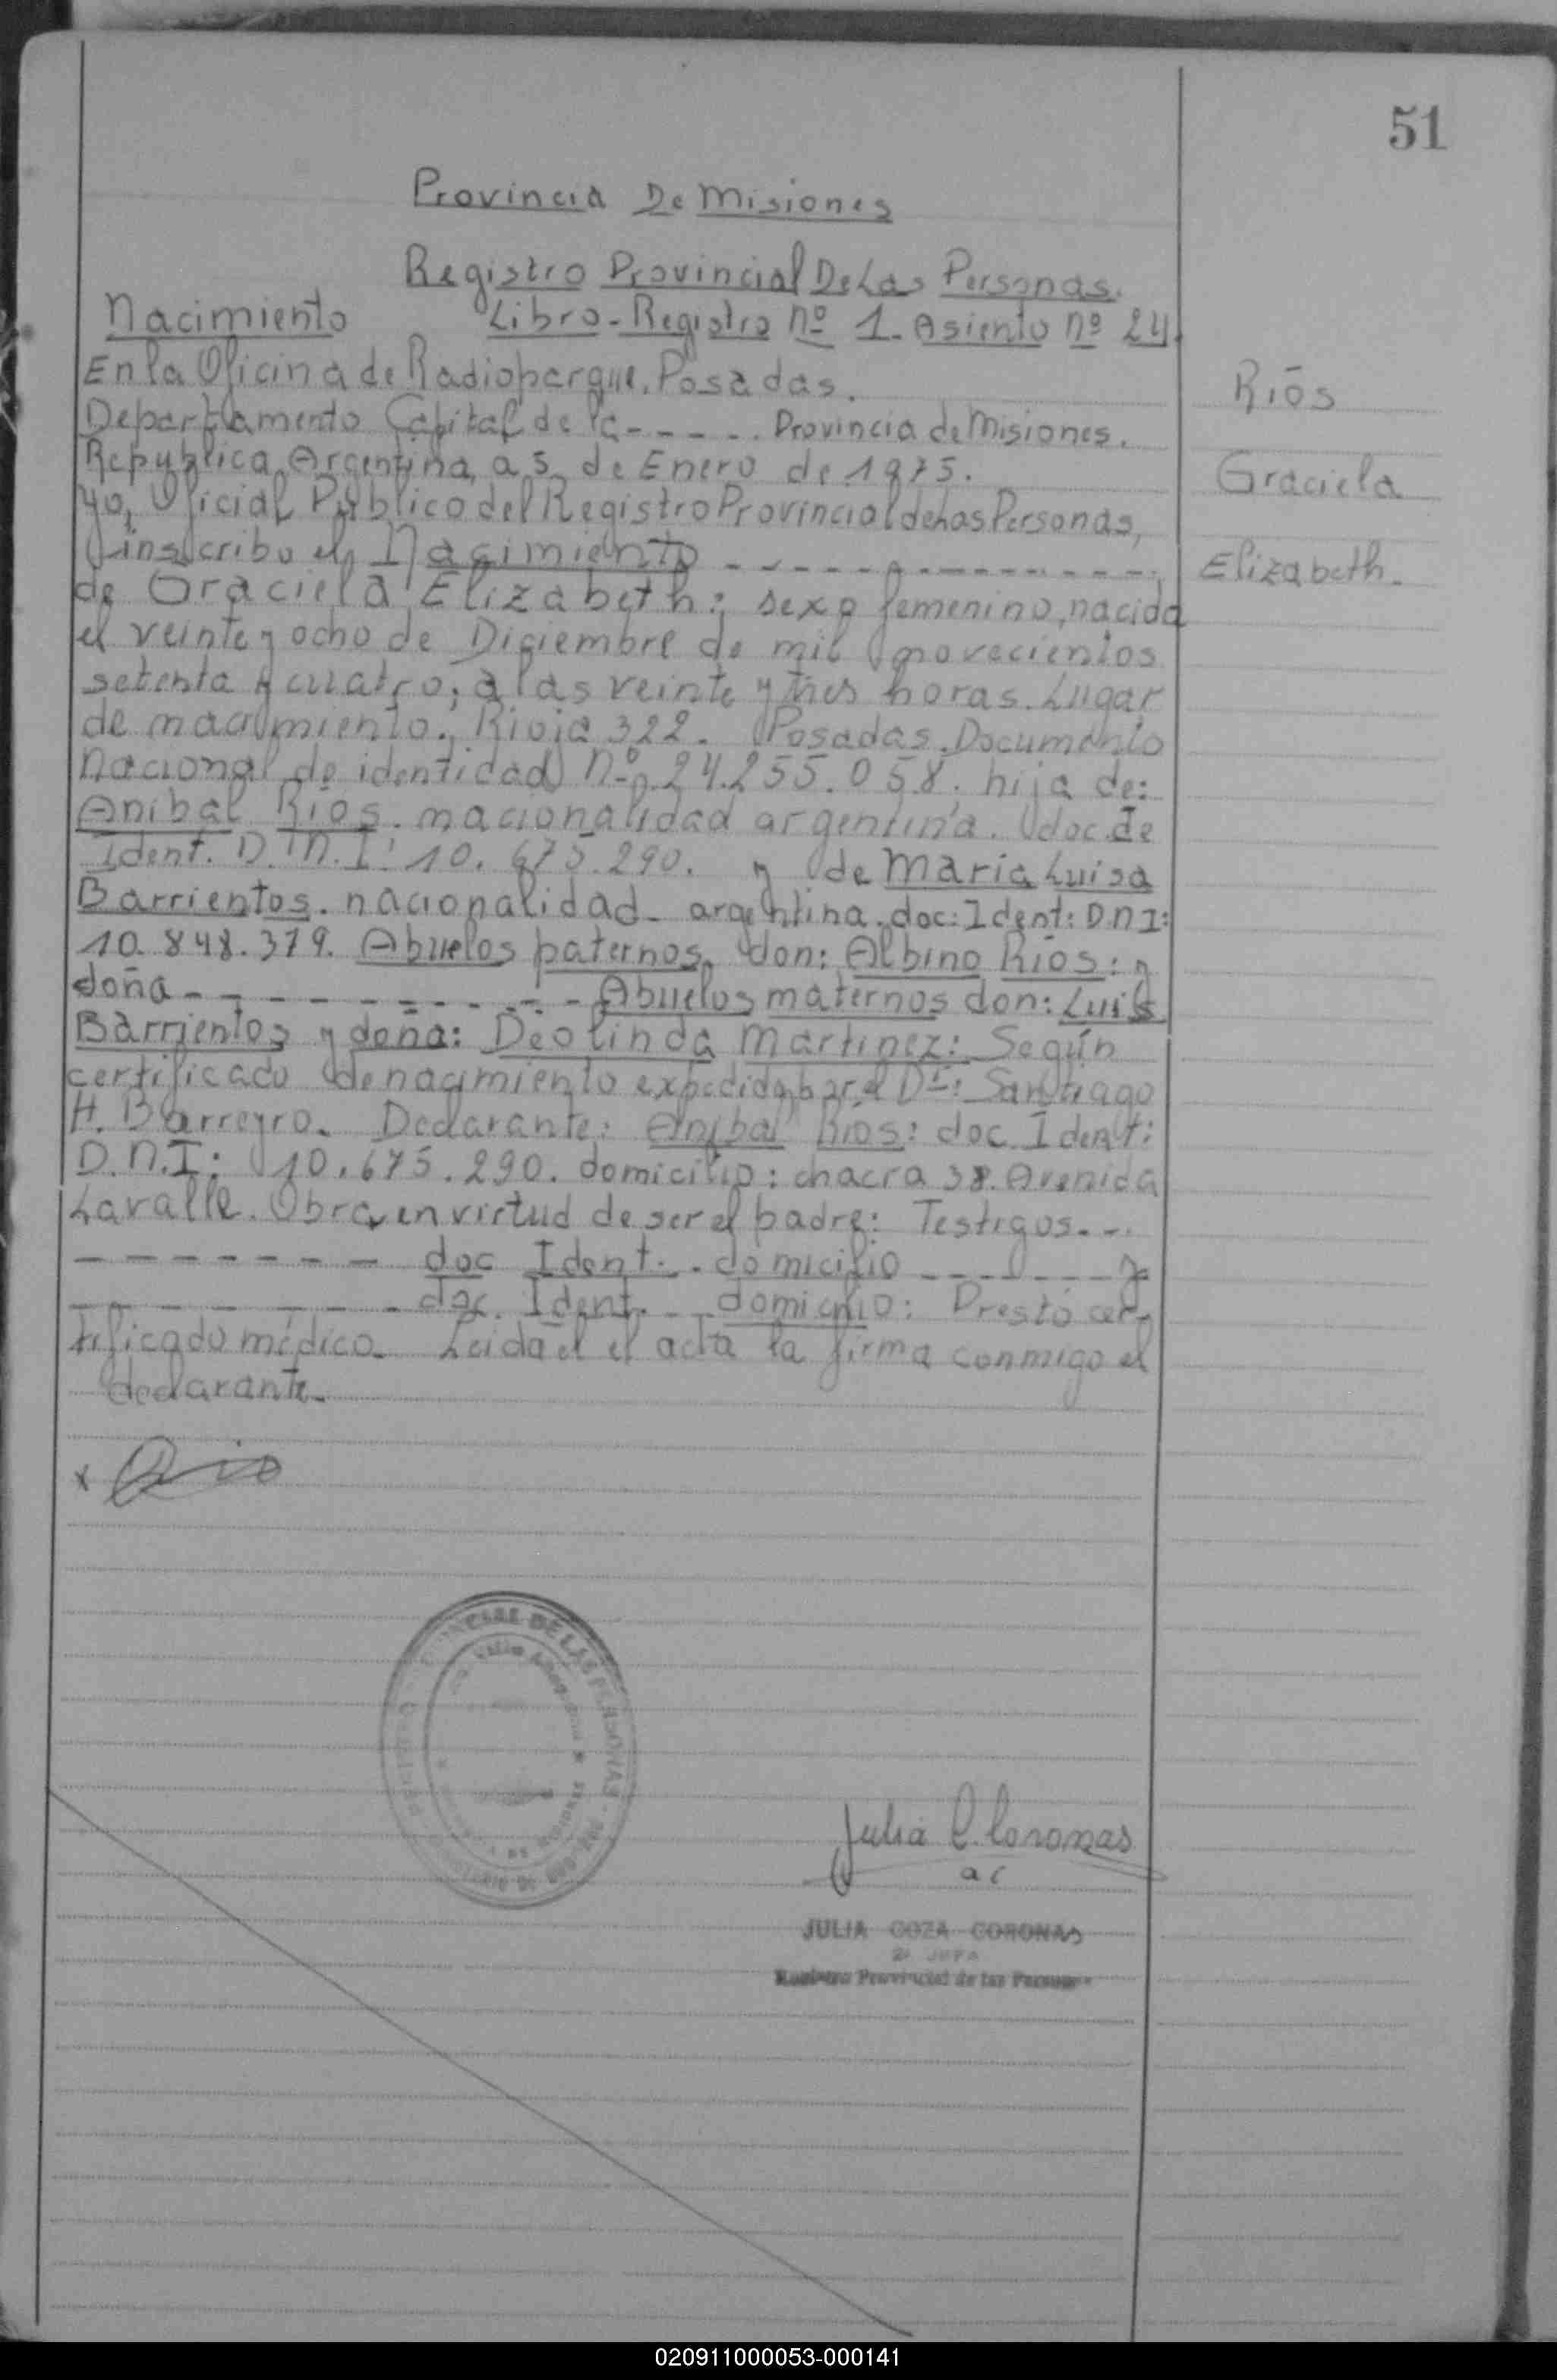 51
Provincia De Misiones
Registro Provincial De Las Personas.
Nacimiento Libro-Registro nº 1- Asiento nº 24.
En la Oficina de Radioparque. Posadas.
Departamento Capital de la - - - - - . Provincia de Misiones.
Republica Argentina, a 5 de Enero de 1975.
yo, Oficial Público del Registro Provincial de Las Personas,
inscribo el Nacimiento - - - - - - - - - - - - - -
de Graciela Elizabeth: sexo femenino, nacida
el veinte y ocho de Diciembre de mil novecientos
setenta y cuatro; a las veinte y tres horas. Lugar
de nacimiento. Rioja 322. Posadas. Documento
Nacional de identidad Nº 24.255.058. hija de:
Anibal Ríos. nacionalidad argentina. doc. de
Ident. D.N.I: 10.675.290. y de Maria Luisa
Barrientos. nacionalidad - argentina. doc: Ident: D.N.I:
10.848.379. Abuelos paternos. don: Albino Ríos: y
doña - - - - - - - - - - - Abuelos maternos don: Luis
Barrientos y doña: Deolinda Martinez: Según
certificado de nacimiento expedido por el Dr: Santiago
H. Barreyro. Declarante: Anibal Ríos: doc. Ident:
D.N.I: 10.675.290. domicilio: chacra 38. Avenida
Lavalle. Obra en virtud de ser el padre: Testigos. - -
- - - - - - - - doc Ident. . domicilio - - - - - - - y
- - - - - - - - doc. Ident. - domicilio: Prestó cer-
tificado médico. Leida el el acta la firma conmigo el
declarante.
Ríos
Graciela
Elizabeth.
x Rio
CIAL DE LAS PERSONAS
Julia C. Coronas
a c
JULIA COZA CORONAS
2ª JEFA
Registro Provincial de las Personas
020911000053-000141